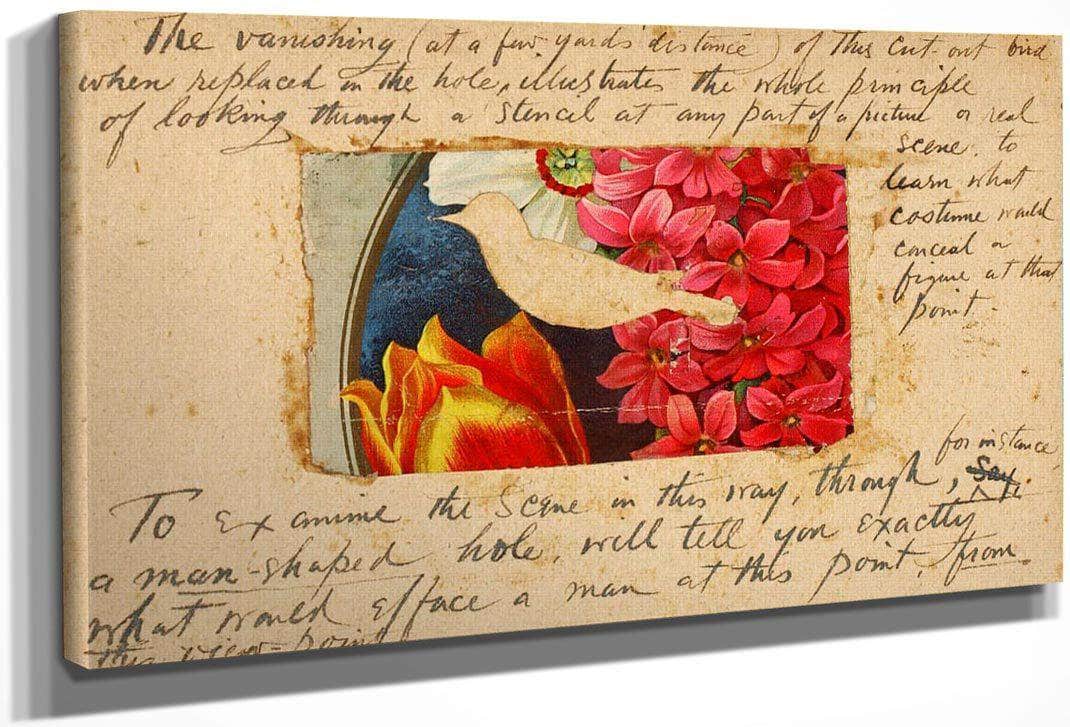 The vanishing (at a few yards' distance) of this cut-out bird
when replaced in the hole, illustrates the whole principle
of looking through a stencil at any part of a picture or real
scene, to
learn what
costume would
conceal a
figure at that
point.
for instance,
To examine the scene in this way, through, say,
a man-shaped hole, will tell you exactly
what would efface a man at this point, from
this view-point